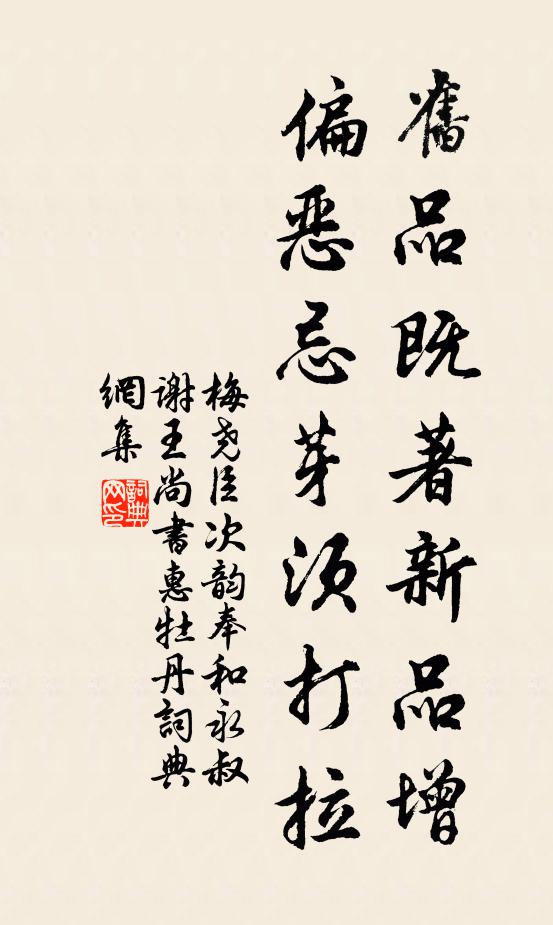 舊品既著新品增
偏惡忌芽須打拉
梅尧臣次韵奉和永叔
谢王尚書惠牡丹詞典
網集
詞典
网印